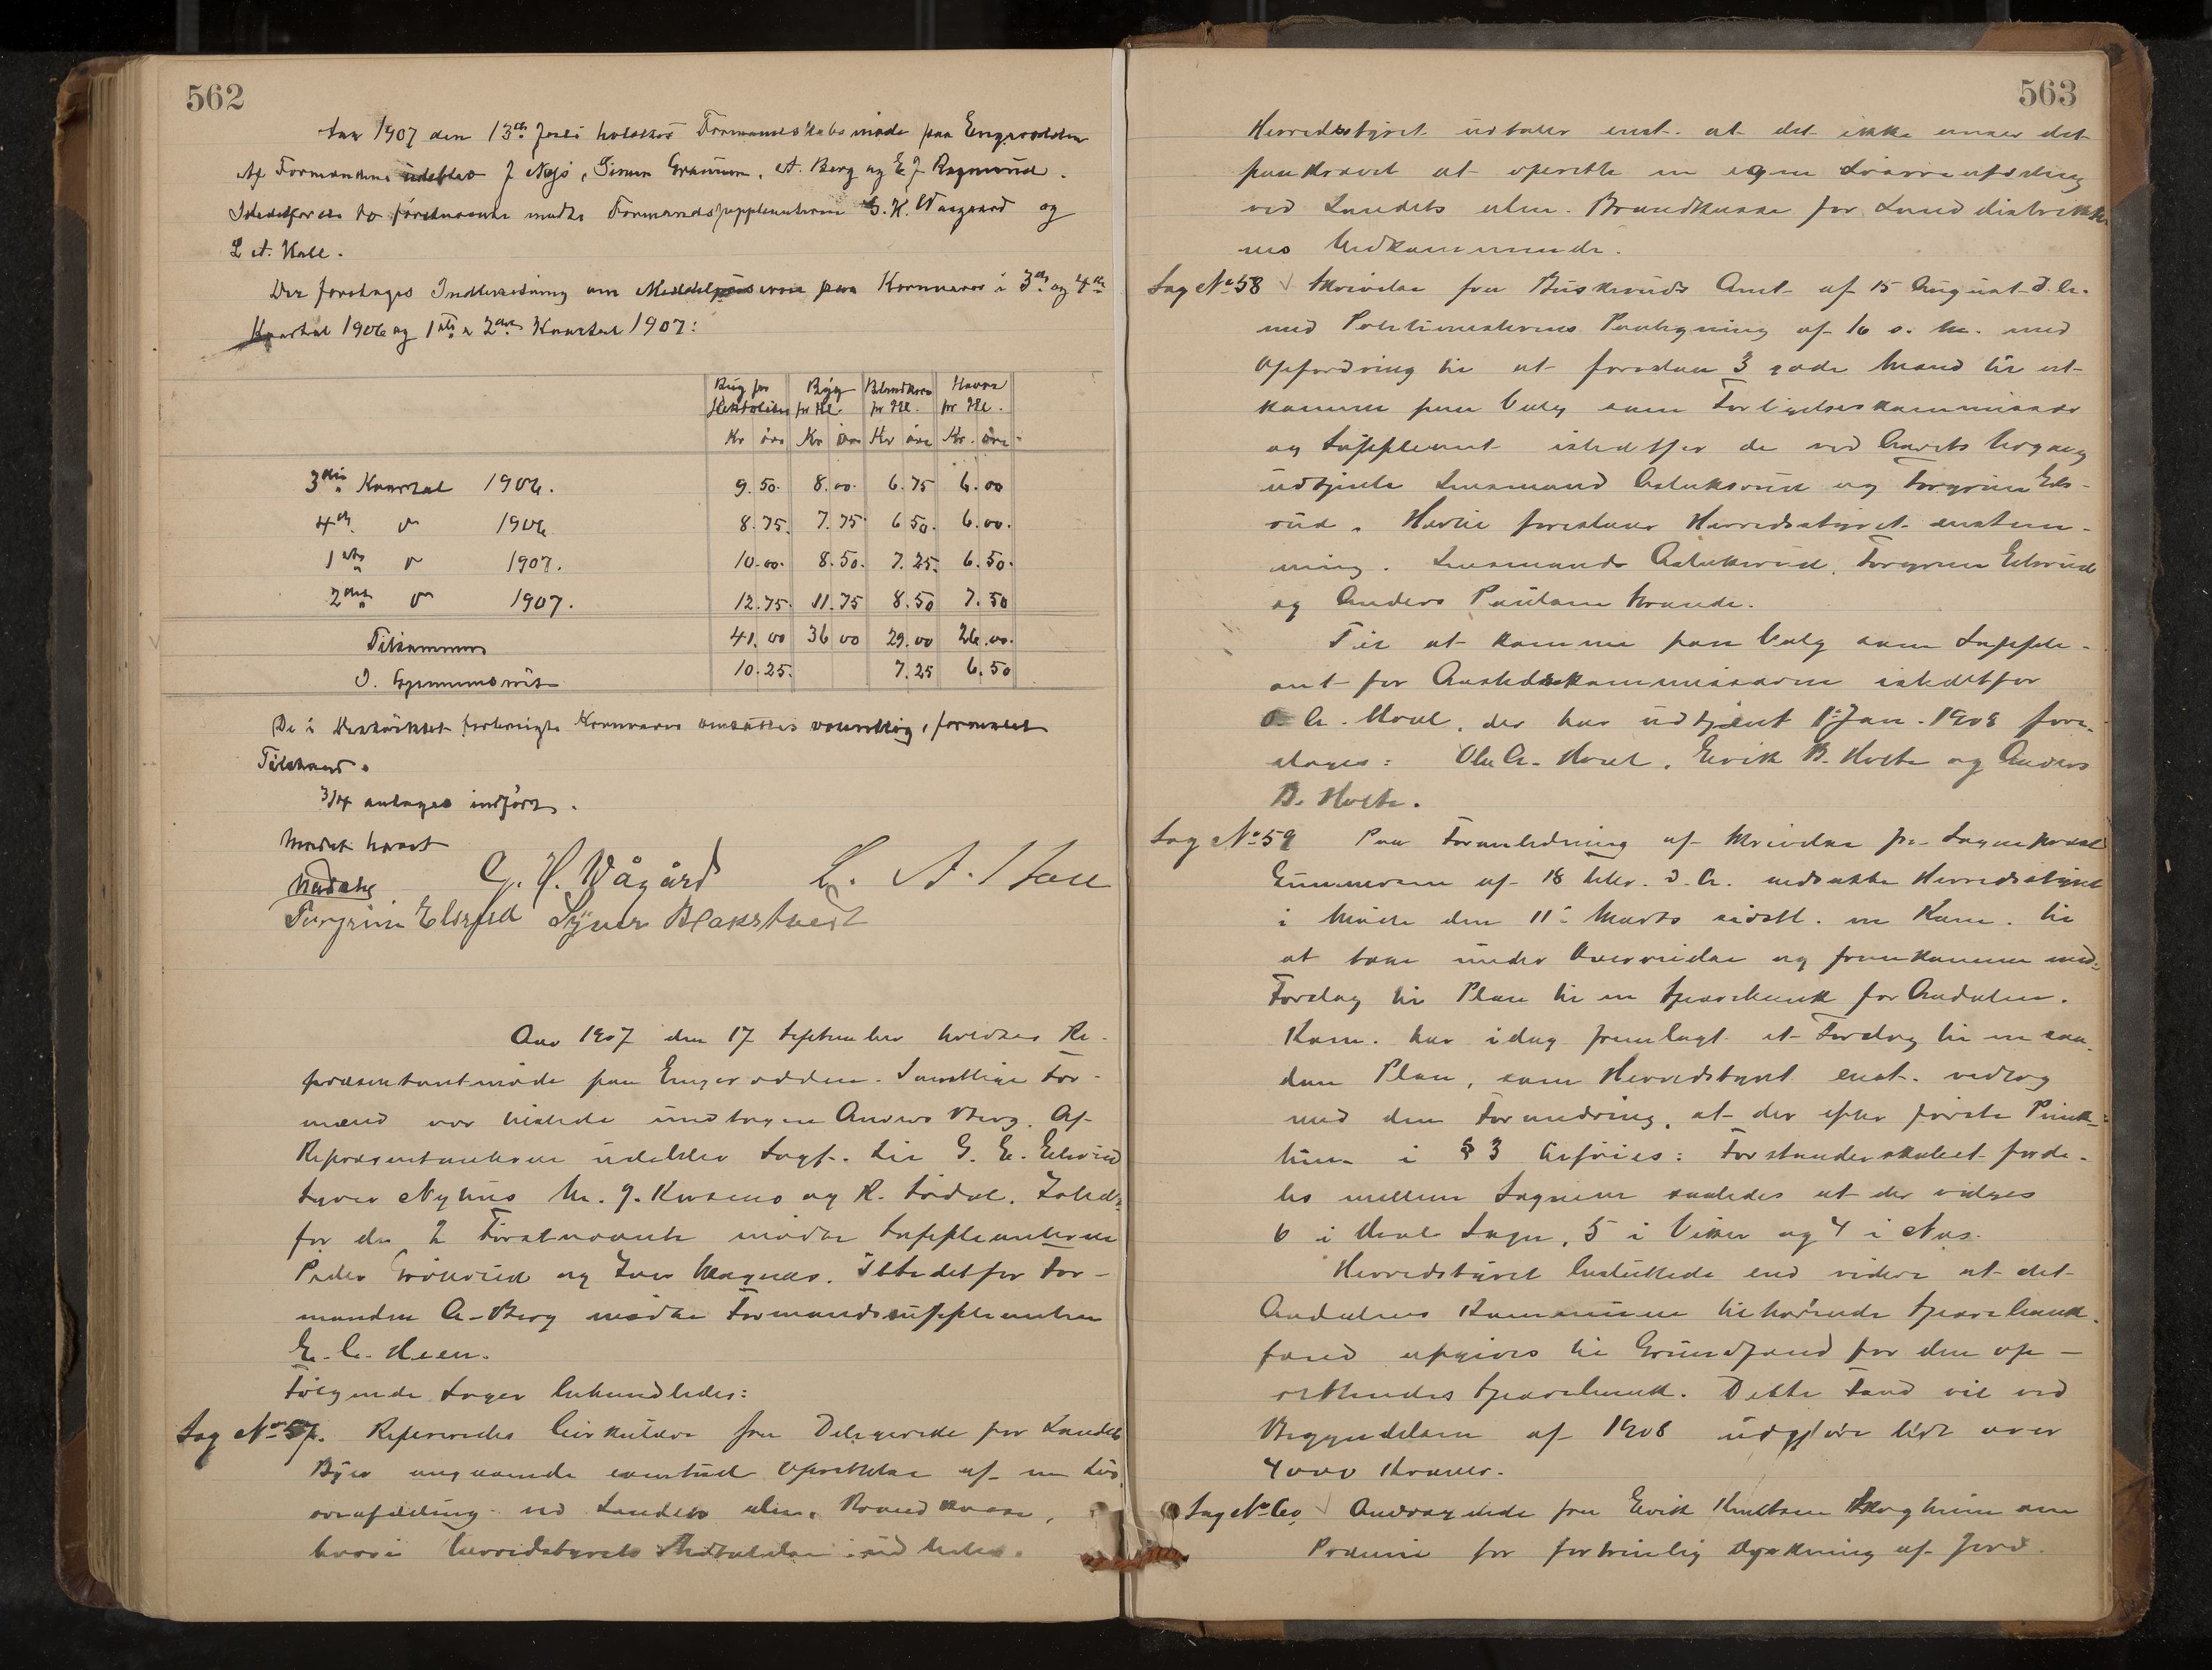 562
Aar 1907 den 13de Juli holdtes Formandskabsmöde paa Engerodden
Af Formændene udeblev J Nejö, Simen Granum, A. Berg og E J Ragnvrud.
Istedetfor de to förstnævnte mødte Formandssuppleanterne G. K. Waagaard og
L A. Hall.
Der foretoges Indberetning om Middelpriserne paa Kornvarer i 3die og 4de
Kvartal 1906 og 1ste og 2det Kvartal 1907:
Rug pr Hektoliter Byg pr Hl. Blandkorn pr Hl. Havre pr Hl.
Kr öre Kr öre Kr öre Kr. öre
3die Kvartal 1906. 9.50. 8.00. 6.75 6.00
4de " 1906 8.75. 7.75 6 50. 6.00.
1ste " 1907. 10.00. 8.50. 7.25. 6.50.
2det " 1907. 12.75. 11.75 8.50 7.50
Tilsammen 41.00 36 00 29.00 26.00.
I. Gjennemsnit 10.25. 7.25 6.50
De i Distriktet forbrugte Kornvarer omsættes væsentlig i formalet
Tilstand.
3/4 antages indfört.
Mödet hævet
G. H. Vågård L. A. Hall
Turgrim Elsrud Syver Bakstveit
Aar 1907 den 17 September holdtes Re-
præsentantmöde paa Engerodden. Samtlige For-
mænd var tilstede undtagen Anders Berg. Af
Repræsentanterne udeblev Sagf. Lie G. E. Elsrud
Syver Nyhus M. J. Kirsens og K. Sødal. Istedet-
for de 2 Förstnævnte mödte Suppleanterne
Peder Grönrud og Iver Hagenæs. Istedetfor For-
manden A. Berg mödte Formandssuppleanten
E. C. Heen.
Fölgende Sager behandledes:
Sag No 57. Refereredes Cirkulære fra Delegerede for Landets
Byer angaaende eventuel Oprettelse af en Liv
oreafdeling ved Landets alm. Brandkasse,
hvori Herredsstyrets Udtalelse udbedes.
563
Herredsstyret udtaler enst. at det ikke anser det
paakrævet at oprette en egen Livöreafdeling
ved Landets alm. Brandkasse for Landdistrikter-
nes Vedkommende.
Sag No 58 Skrivelse fra Buskeruds Amt af 15 August d. A.
med Politimesterens Paategning af 16 s. M. med
Opfordring til at foreslaa 3 gode Mænd til at
komme paa Valg som Forligelseskommissær
og Suppleant istedetfor de ved Aarets Udgang
udtjente Lensmand Aslaksrud og Torgrim Els-
rud. Hertil foreslaar Herredsstyret enstem-
mig. Lensmand Aslaksrud, Torgrim Elsrud
og Anders Paulsen Strande.
Til at komme paa Valg som Supple-
ant for Aastedskommissæren istedetfor
O. A. Hovel, der har udtjent 1. Jan. 1908 fore-
slages: Ole A. Hovel, Erik B. Holte og Anders
B. Holte.
Sag No 59 Paa Foranledning af Skrivelse fra Sogneprest
Gunnersen af 18 Febr. d. A. nedsatte Herredsstyret
i Möde den 11. Marts sidstl. en Kom. til
at tage under Overveielse og fremkomme med
Forslag til Plan til en Sparebank for Aadalen.
Kom. har idag fremlagt et Forslag til en saa-
dan Plan, som Herredsstyret enst. vedtog
med den Forandring, at der efter förste Punk-
tum i § 3 tilföies: Forstanderskabet forde-
les mellem Sognene saaledes at der vælges
6 i Hval Sogn, 5 i Viker og 4 i Næs.
Herredsstyret besluttede end videre at det
Aadalens Kommune tilhörende Sparebank-
fond opgives til Grundfond for den op-
rettendes Sparebank. Dette Fond vil ved
Begyndelsen af 1908 udgjöre lidt over
4000 Kroner.
Sag No 60. Andragende fra Erik Knutsen Skoghim om
Præmie for fortrinlig Dyrkning af Jord.